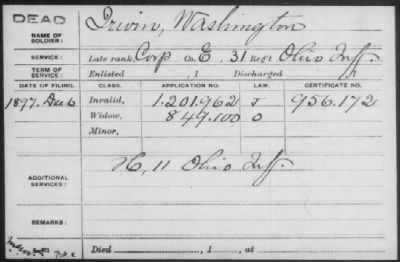 DEAD
NAME OF SOLDIER: Irwin, Washington
SERVICE: Late rank, Corp Co. E, 31 Reg't Ohio Inf.
TERM OF SERVICE: Enlisted , 1 Discharged , 1
DATE OF FILING. CLASS. APPLICATION NO. CERTIFICATE NO.
1897. Dec 6 Invalid, 1.201.962 J 956.172
Widow, 849.100 O
Minor,
ADDITIONAL SERVICES: H, 11 Ohio Inf.
REMARKS:
Died , 1 , at